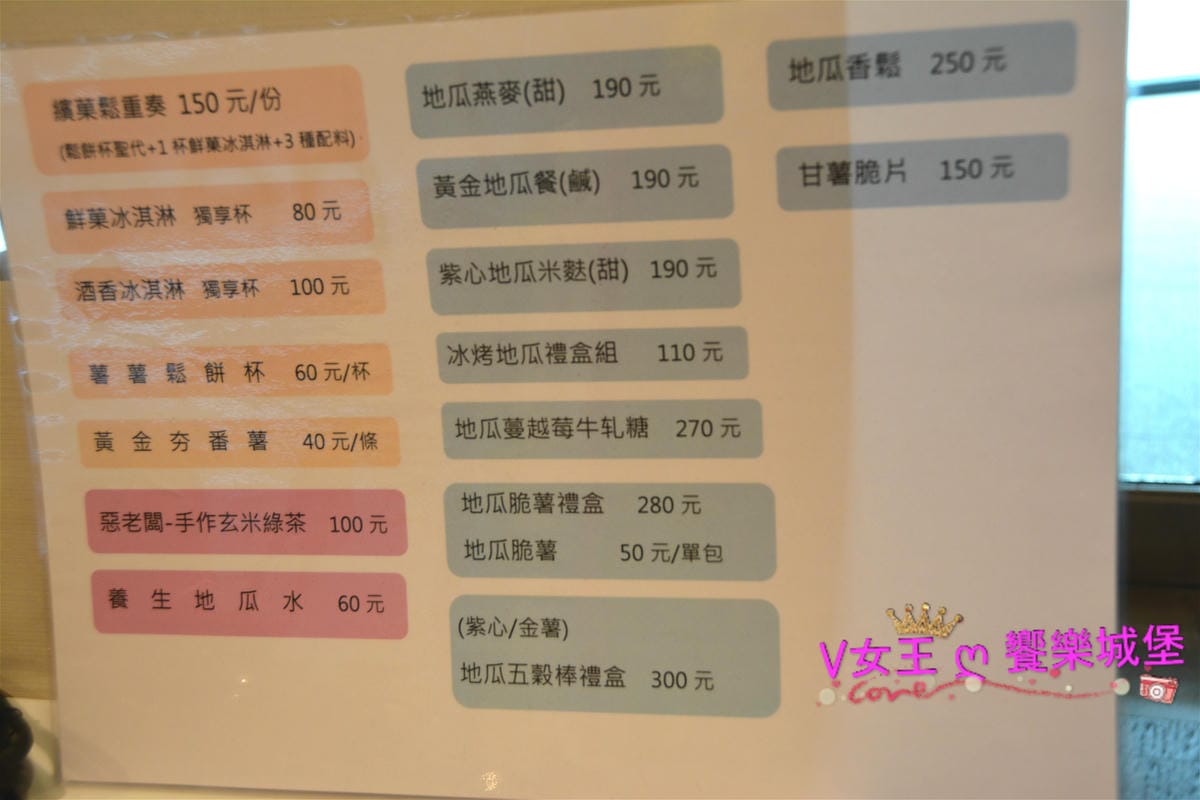 繽菓鬆重奏 150 元/份
(鬆餅杯聖代+1 杯鮮菓冰淇淋+3 種配料)
鮮菓冰淇淋 獨享杯 80 元
酒香冰淇淋 獨享杯 100 元
薯薯鬆餅杯 60 元/杯
黃金夯番薯 40 元/條
惡老闆-手作玄米綠茶 100 元
養生地瓜水 60 元
地瓜燕麥(甜) 190 元
黃金地瓜餐(鹹) 190 元
紫心地瓜米麩(甜) 190 元
冰烤地瓜禮盒組 110 元
地瓜蔓越莓牛軋糖 270 元
地瓜脆薯禮盒 280 元
地瓜脆薯 50 元/單包
(紫心/金薯)
地瓜五穀棒禮盒 300 元
地瓜香鬆 250 元
甘薯脆片 150 元
V女王 ღ 饗樂城堡
Love